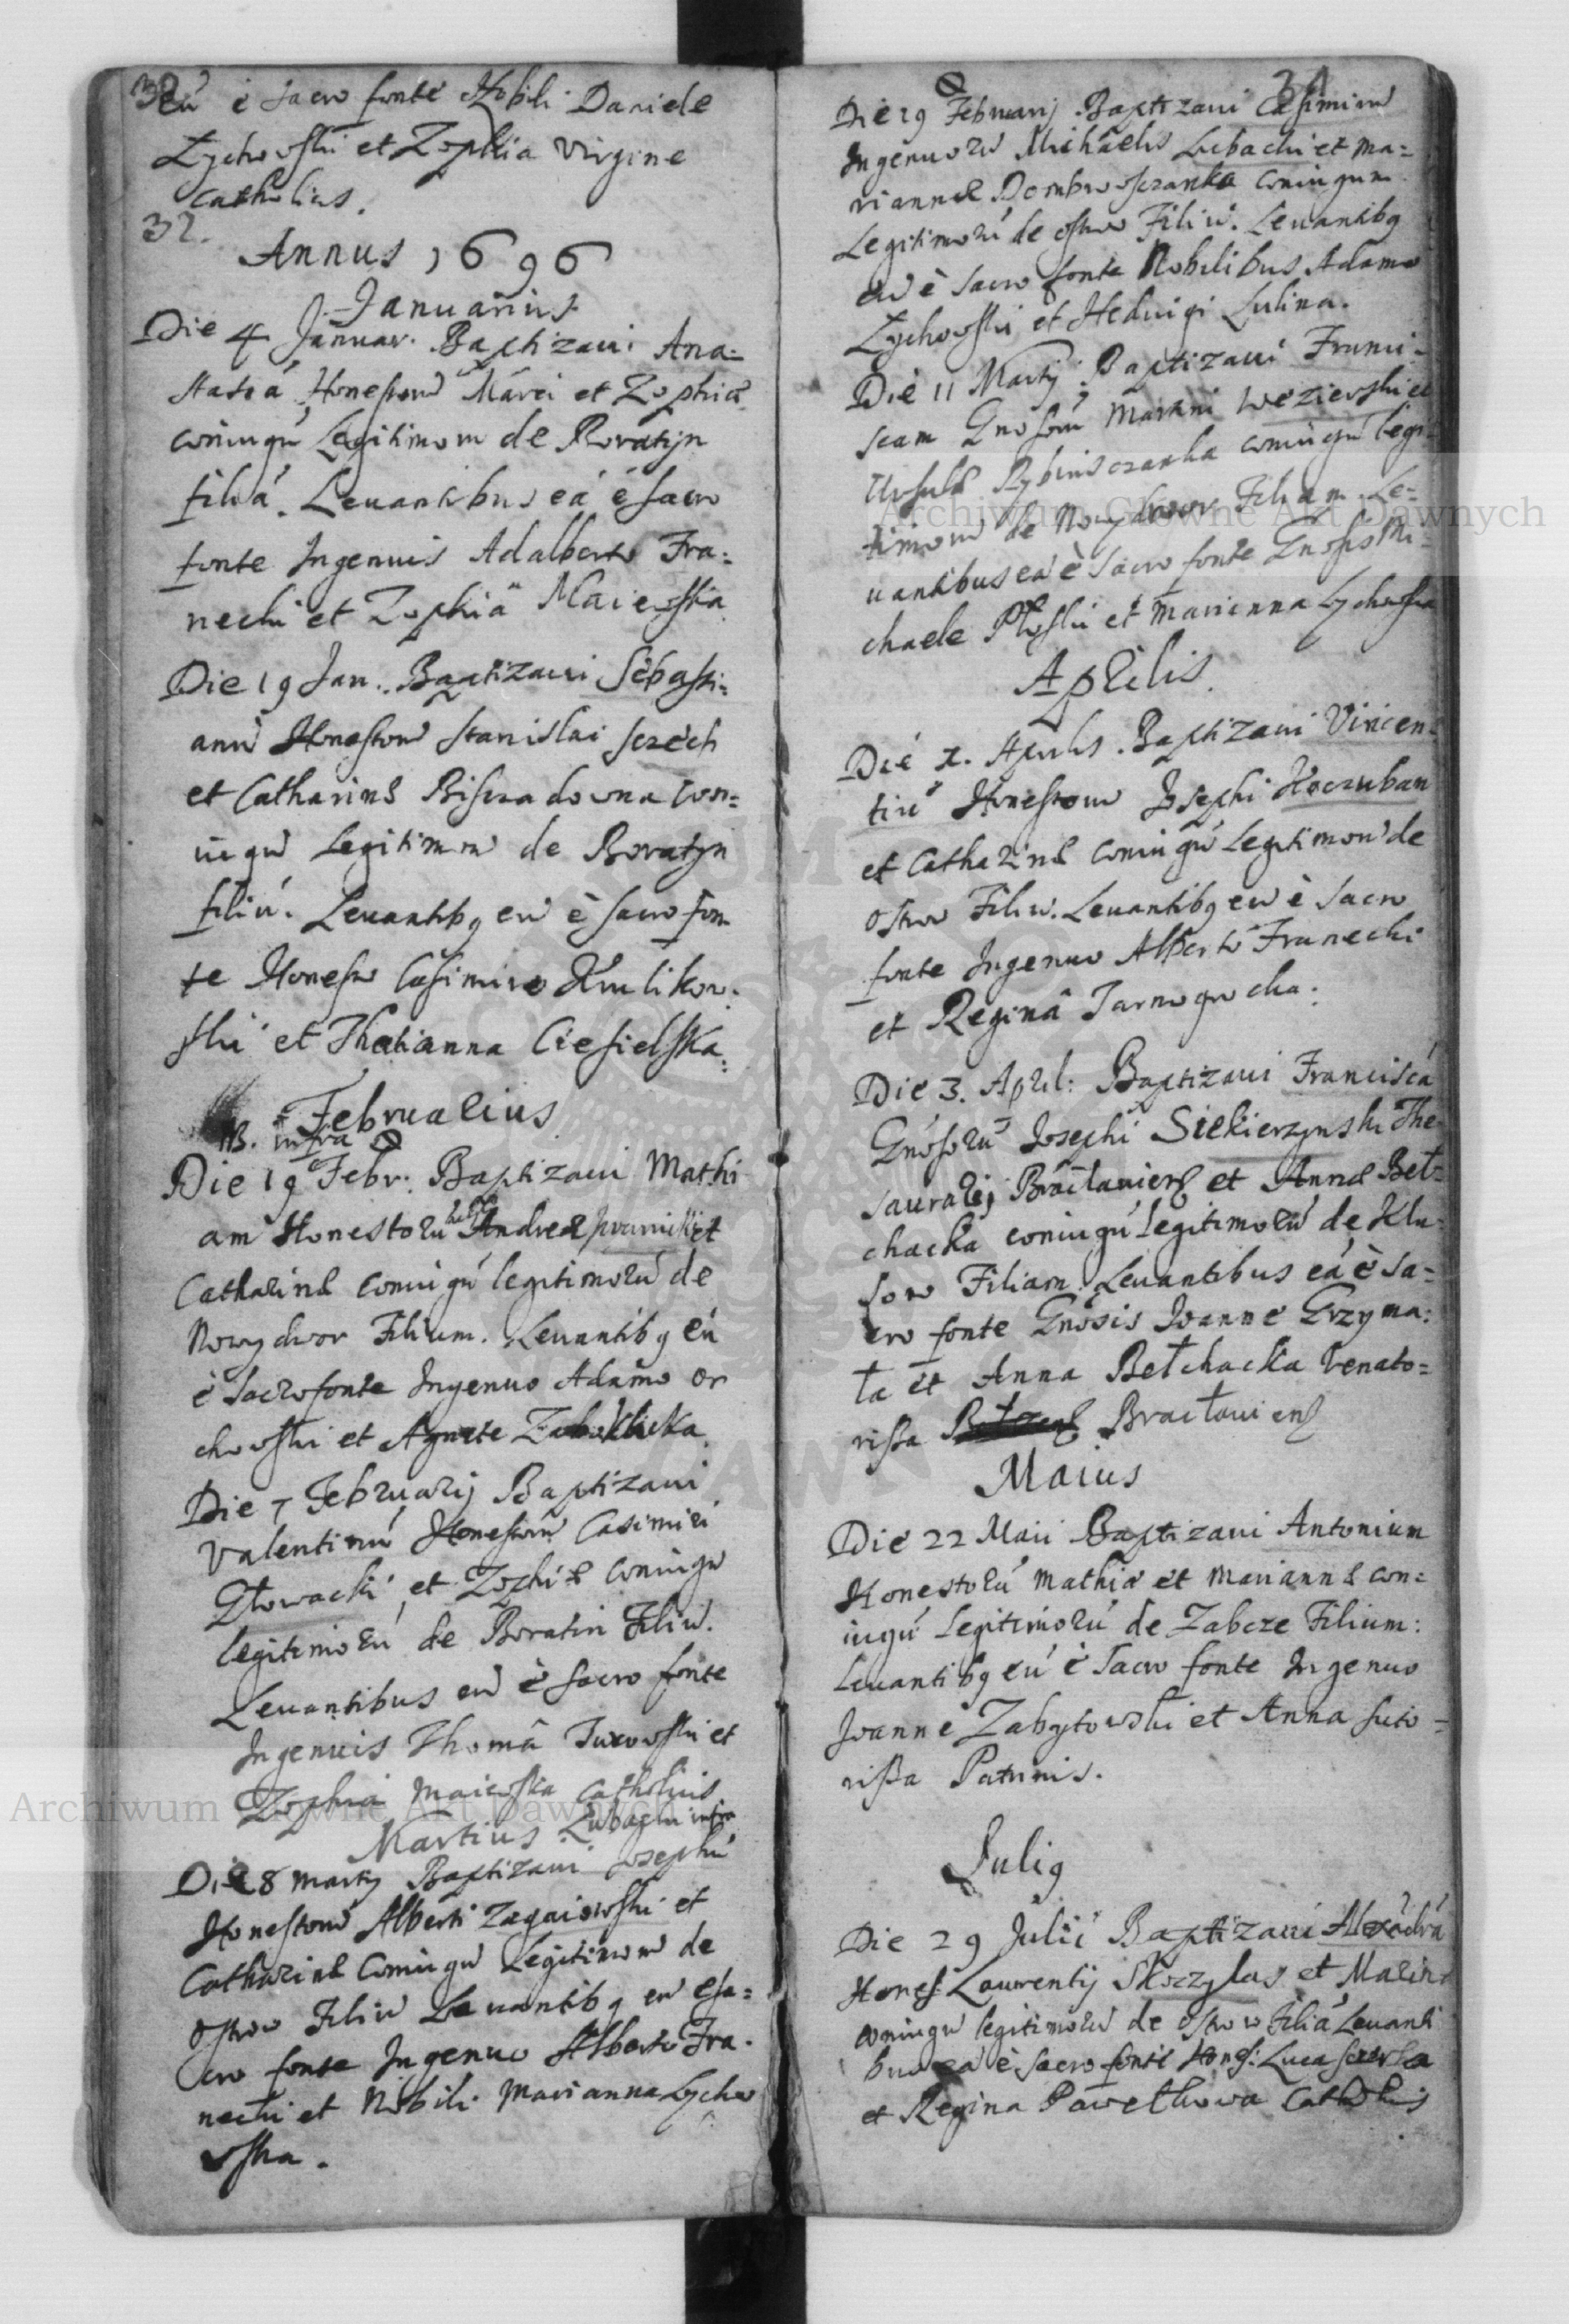 32
eú è sacro fonte Nobili Daniele
Łychowski et Zophia Virgine
Catholicis.
32.
Annus 1696
Januarius
Die 4 Januar. Baptizaui Ana=
stasiá Honestorú Marci et Zophiæ
coniugú Legitimorú de Boratyn
filiá. Leuantibus eá è sacro
fonte Ingenuis Adalberto Fra=
necki et Zophiâ Maiewska
Die 19 Jan. Baptizaui Sebasti=
anú Honestorú Stanislai Szech
et Catharinæ Riszradowna con=
iugú Legitimorú de Boratyn
filiú. Leuantibq eú è sacro fon
te Honesto Casimiro Krulikow=
ski et Thatianna Ciesielska.
Februarius
NB. infra
Die 19 Febr: Baptizaui Mathi
am Honestorú Andreæ et
Catharinæ coniugú legitimorú de
Nowydwor Filium. Leuantibq eú
è sacro fonte Ingenuo Adamo Or
chowski et Agnete
Die 7 Februarij Baptizaui
Valentinú Honestorú Casimiri
Głowacki et Zophiæ coniugú
legitimorú de Boratin Filiú.
Leuantibus eú è sacro fonte
Ingenuis Thomâ Turowski et
Zophia Maiewska Catholicis
Martius. Lubachi infra
Die 8 Martij Baptizaui Josephú
Honestorú Alberti Zagaiowski et
Catharinæ Coniugú Legitimorú de
Ostrow Filiú Leuantibq eú è sa=
cro fonte Ingenuo Alberto Fra=
necki et Nobili Marianna Łycho
wska.
34
Die 19 Februarij Baptizaui Casimirú
Ingenuorú Michaelis Lubachi et Ma=
riannæ Dombrowszanka coniugum
Legitimorú de Ostrow Filiú. Leuantibq
eú è sacro fonte Nobilibus Adamo
Łychowski et Heduigi Lulina.
Die 11 Martij Baptizaui Franci=
scam Gnosorú Martini Wezierski et
Ursulæ Rybinsczanka coniugú legi=
timorú de Nowydwor Filiam. Le=
uantibus eá è sacro fonte Gnosis Mi=
chaele Płoski et Marianna Łychowska
Aprilis.
Die 1. Aprilis. Baptizaui Vincen=
tiú Honestorú Josephi Koczuban
et Catharinæ coniugú Legitimorú de
Ostrow Filiú. Leuantibq eú è sacro
fonte Ingenuo Alberto Franecki
et Reginâ Tarnogrocka.
Die 3. April: Baptizaui Franciscá
Gnosorú Josephi Siekierzynski The
saurarij Bracłauienß et Annæ Beł=
chacka coniugú legitimorú de Klu=
sow Filiam. Leuantibus eá è sa=
cro fonte Gnosis Joanne Grzyma=
ła et Anna Bełchacka Venato=
rissa Bracłauienß
Maius
Die 22 Maii Baptizaui Antonium
Honestorú Mathiæ et Mariannæ con=
iugú Legitimorú de Zabcze Filium:
Leuantibq eú è sacro fonte Ingenuo
Joanne Zabytowski et Anna Suto=
rissa Patrinis.
Juliq
Die 29 Julii Baptizaui Alexádrá
Honest: Laurentij Skoczylas et Marinæ
coniugú legitimorú de Ostrow Filiá Leuanti
bus eá è sacro fonte Honest: Luca
et Regina Pawełkowa Catholicis
Archiwum Główne Akt Dawnych
Archiwum Główne Akt Dawnych